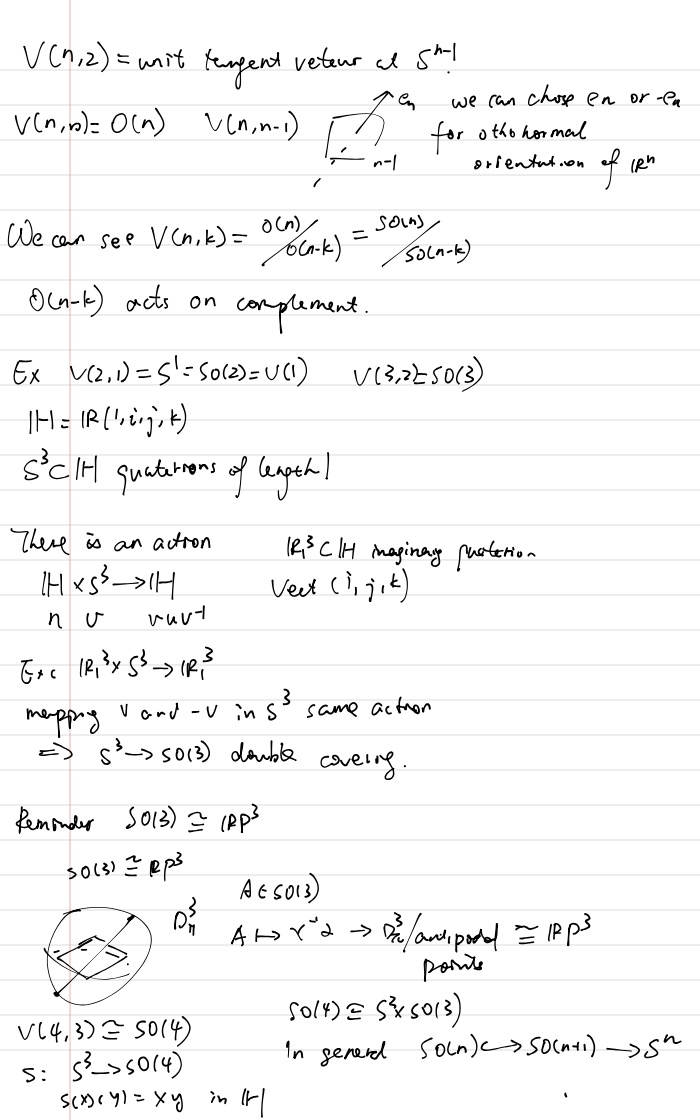 V(n,2) = unit tangent veteur at S^{n-1}
V(n,n) = O(n) V(n,n-1) e_n we can chose en or -en
n-1 for othohormal
orientation of IR^n
We can see V(n,k) = O(n)/O(n-k) = SO(n)/SO(n-k)
O(n-k) acts on complement.
Ex V(2,1) = S^1 = SO(2) = U(1) V(3,2) ≅ SO(3)
IH = IR(1,i,j,k)
S^3 ⊂ IH quaterions of length 1
There is an action IR_1^3 ⊂ IH imaginary
IH × S^3 → IH Vect (i,j,k)
u v vuv^{-1}
Exc IR_1^3 × S^3 → IR_1^3
mapping v and -v in S^3 same action
=> S^3 → SO(3) double covering.
Reminder SO(3) ≅ IRP^3
SO(3) ≅ RP^3
D_π^3 A ∈ SO(3)
A ↦ → D_π^3/antipodal ≅ IRP^3
points
V(4,3) ≅ SO(4) SO(4) ≅ S^3 × SO(3)
S: S^3 → SO(4) In general SO(n) ↪ SO(n+1) → S^n
S(x)(y) = xy in IH